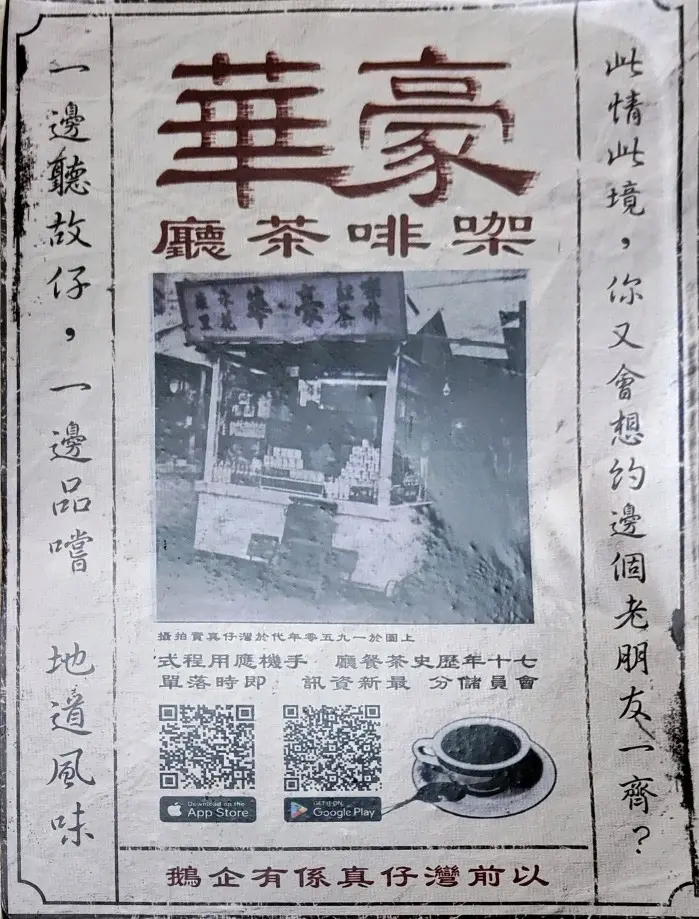 豪華
㗎啡茶廳
此情此境，你又會想約邊個老朋友一齊？
一邊聽故仔，一邊品嚐 地道風味
紅茶
豪華
上圖於一九五零年代於灣仔真實拍攝
七十年歷史茶餐廳 手機應用程式
會員儲分 最新資訊 即時落單
Download on the
App Store
GET IT ON
Google Play
以前灣仔真係有企鵝